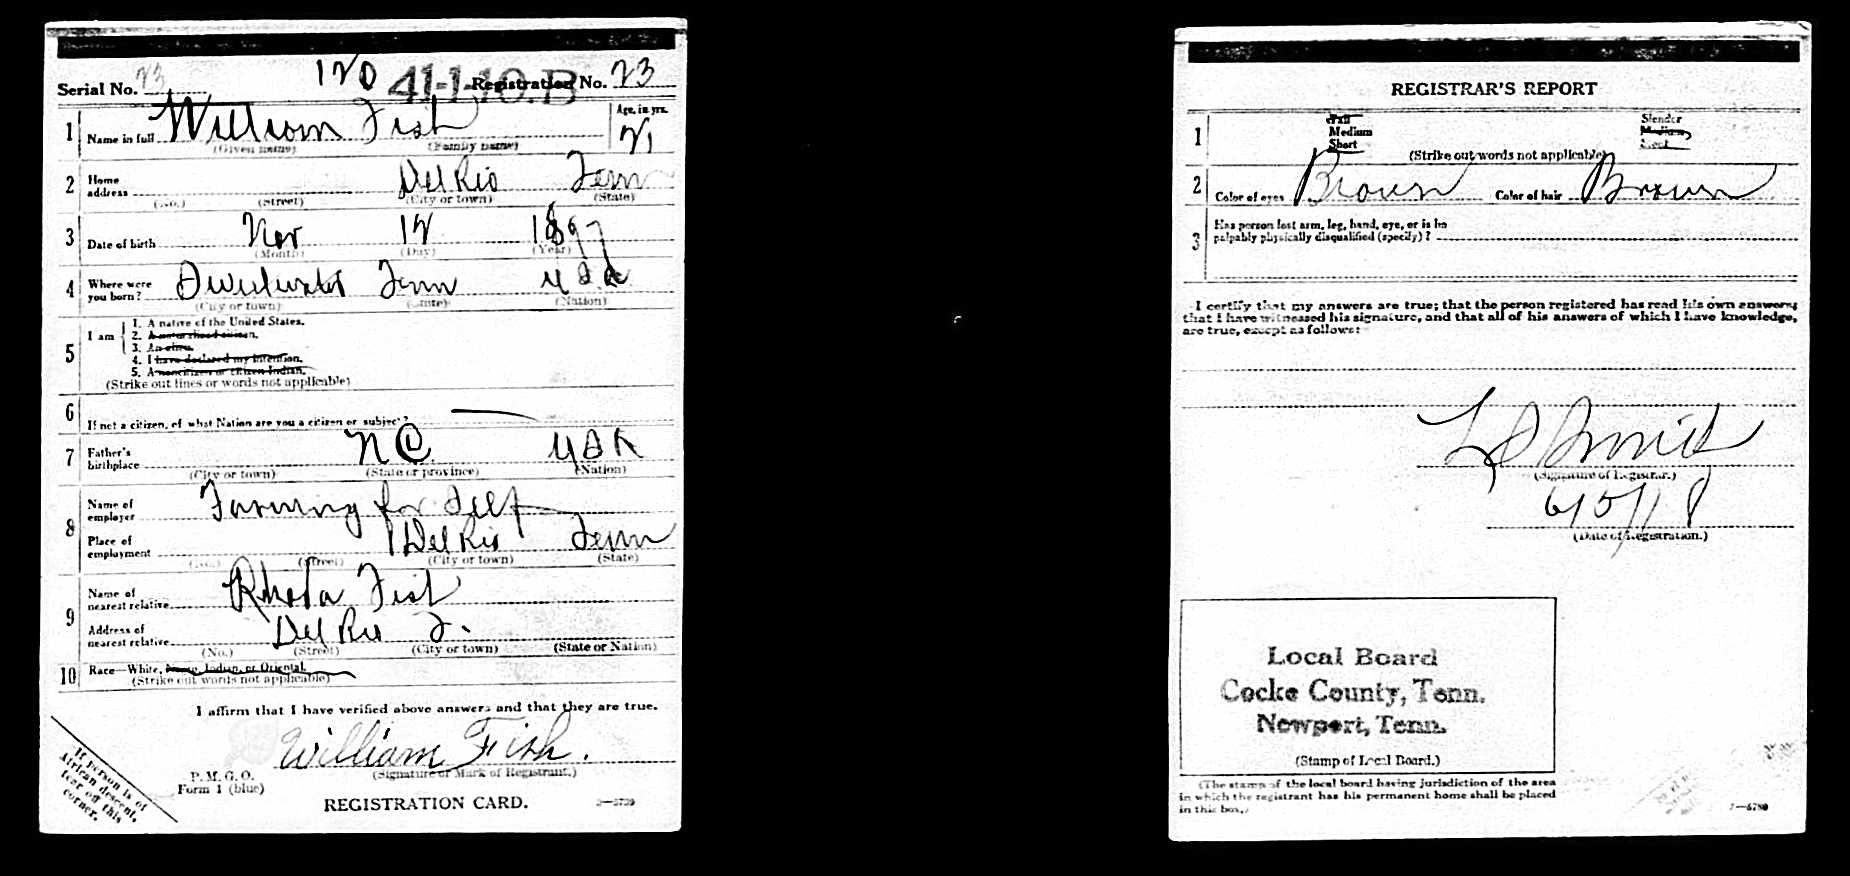 Serial No. 23 120 41-1-10.B Registration No. 23
1 Name in full William Fish Age, in yrs. 21
(Given name) (Family name)
2 Home address Del Rio Tenn
(No.) (Street) (City or town) (State)
3 Date of birth Nov 12 1897
(Month) (Day) (Year)
4 Where were you born? Sweetwater Tenn USA
(City or town) (State) (Nation)
5 I am
1. A native of the United States.
2. A naturalized citizen.
3. An alien.
4. I have declared my intention.
5. A noncitizen or citizen Indian.
(Strike out lines or words not applicable)
6 If not a citizen, of what Nation are you a citizen or subject?
7 Father's birthplace N C USA
(City or town) (State or province) (Nation)
8 Name of employer Farming for Self
Place of employment Del Rio Tenn
(No.) (Street) (City or town) (State)
9 Name of nearest relative Rhoda Fish
Address of nearest relative Del Rio T.
(No.) (Street) (City or town) (State or Nation)
10 Race—White, Negro, Indian, or Oriental.
(Strike out words not applicable)
I affirm that I have verified above answers and that they are true.
William Fish.
(Signature or Mark of Registrant.)
P. M. G. O.
Form 1 (blue)
REGISTRATION CARD.
If person is of
African descent,
tear off this
corner.
REGISTRAR'S REPORT
1 Tall Slender
Medium Medium
Short Stout
(Strike out words not applicable)
2 Color of eyes Brown Color of hair Brown
3 Has person lost arm, leg, hand, eye, or is he
palpably physically disqualified (specify)?
I certify that my answers are true; that the person registered has read his own answers;
that I have witnessed his signature, and that all of his answers of which I have knowledge,
are true, except as follows:
(Signature of Registrar.)
6/5/18
(Date of Registration.)
Local Board
Cocke County, Tenn.
Newport, Tenn.
(Stamp of Local Board.)
(The stamp of the local board having jurisdiction of the area
in which the registrant has his permanent home shall be placed
in this box.)